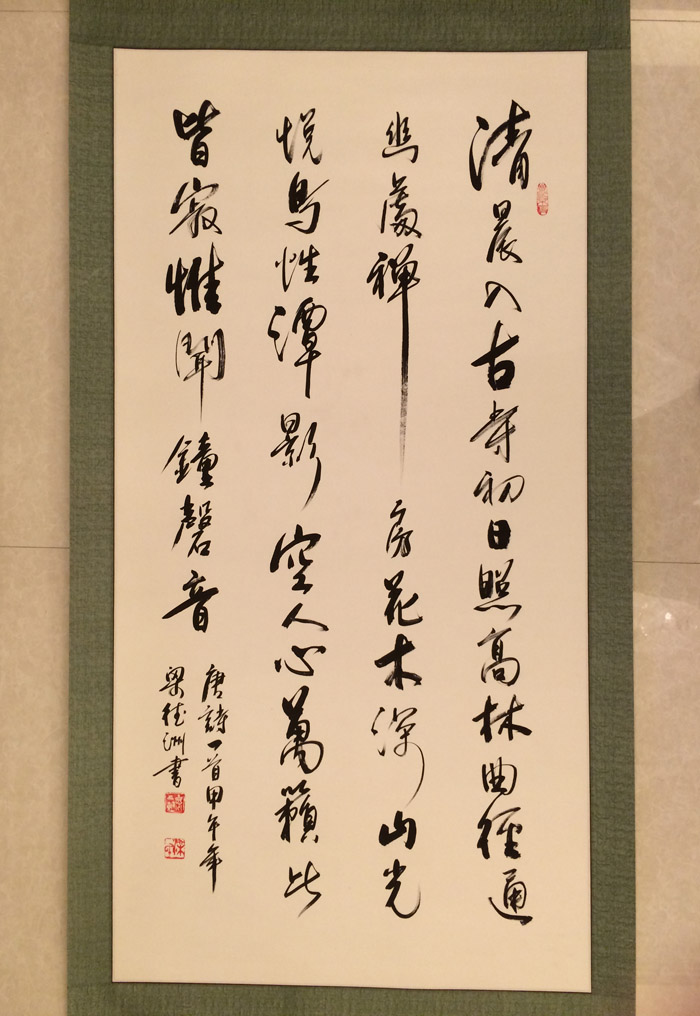 清晨入古寺初日照高林曲徑通
幽處禪房花木深山光
悅鳥性潭影空人心萬籟此
皆寂惟聞鐘磬音
唐詩一首甲午年
梁桂洲書